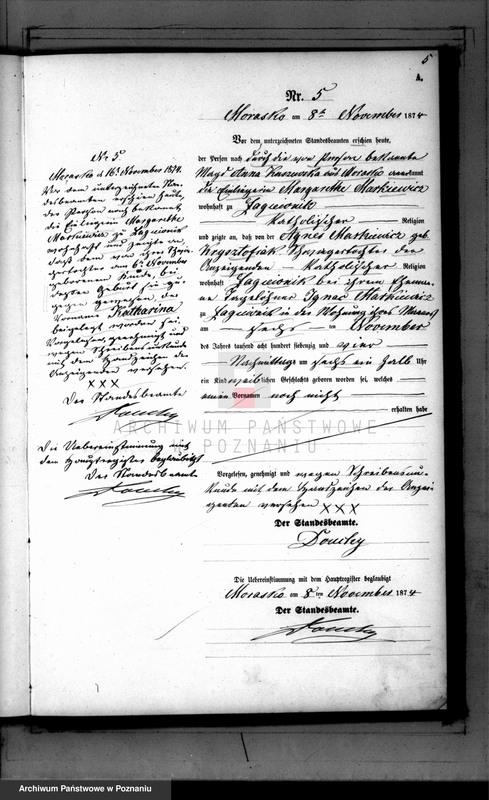 5
A.
Nr. 5
Morasko am 8ten November 1874
Vor dem unterzeichneten Standesbeamten erschien heute,
der Person nach durch die von Person bekannte
Magd Anna aus Morasko anerkannt
die Einliegerin Margarethe Markiewicz
wohnhaft zu Łagiewnik
katholischer Religion
und zeigte an, daß von der Agnes Markiewicz geb.
Krzysztofiak Schwiegertochter der
Anzeigenden katholischer Religion
wohnhaft Łagiewnik bei ihrem Eheman-
ne Tagelöhner Ignac Markiewicz
zu Łagiewnik in der Wohnung ihres Mannes
am sechs ten November
des Jahres tausend acht hundert siebenzig und vier
Nachmittags um sechs ein halb Uhr
ein Kind weiblichen Geschlechts geboren worden sei, welches
einen Vornamen noch nicht
erhalten habe
Vorgelesen, genehmigt und wegen Schreibensun-
kunde mit dem Handzeichen der Anzei-
genden versehen XXX
Der Standesbeamte.
Die Uebereinstimmung mit dem Hauptregister beglaubigt
Morasko am 8ten November 1874
Der Standesbeamte.
No 5
Morasko d. 16t November 1874.
Vor dem unterzeichneten Stan-
desbeamten erschien heute,
der Person nach bekannt
die Einliegerin Margarethe
Markiewicz zu Łagiewnik
wohnhaft und zeigte an,
daß dem von ihrer Schwie-
gertochter am 6t November
geborenen Kinde, bei
dessen Geburt sie zu-
gegen gewesen, der
Vorname Katharina
beigelegt worden sei.
Vorgelesen, genehmigt und
wegen Schreibensunkunde
mit dem Handzeichen der
Anzeigenden versehen.
XXX
Der Standesbeamte
Die Uebereinstimmung mit
dem Hauptregister beglaubigt
Der Standesbeamte
ARCHIWUM PAŃSTWOWE
W POZNANIU
Archiwum Państwowe w Poznaniu